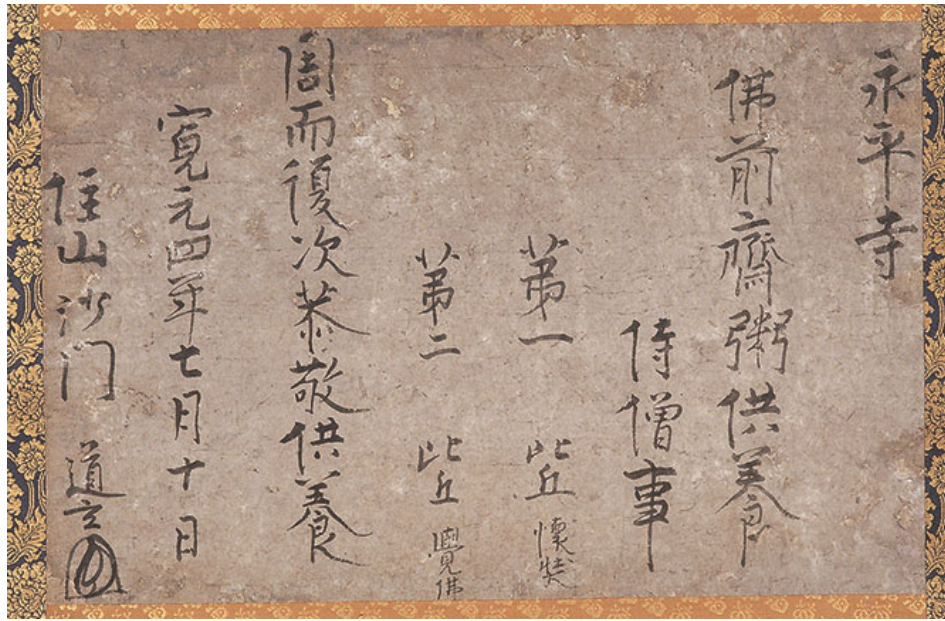 永平寺
佛前齋粥供養
侍僧事
苐一 比丘 懷弉
苐二 比丘 覺佛
周而復次恭敬供養
寛元四年七月十日
住山沙门 道玄